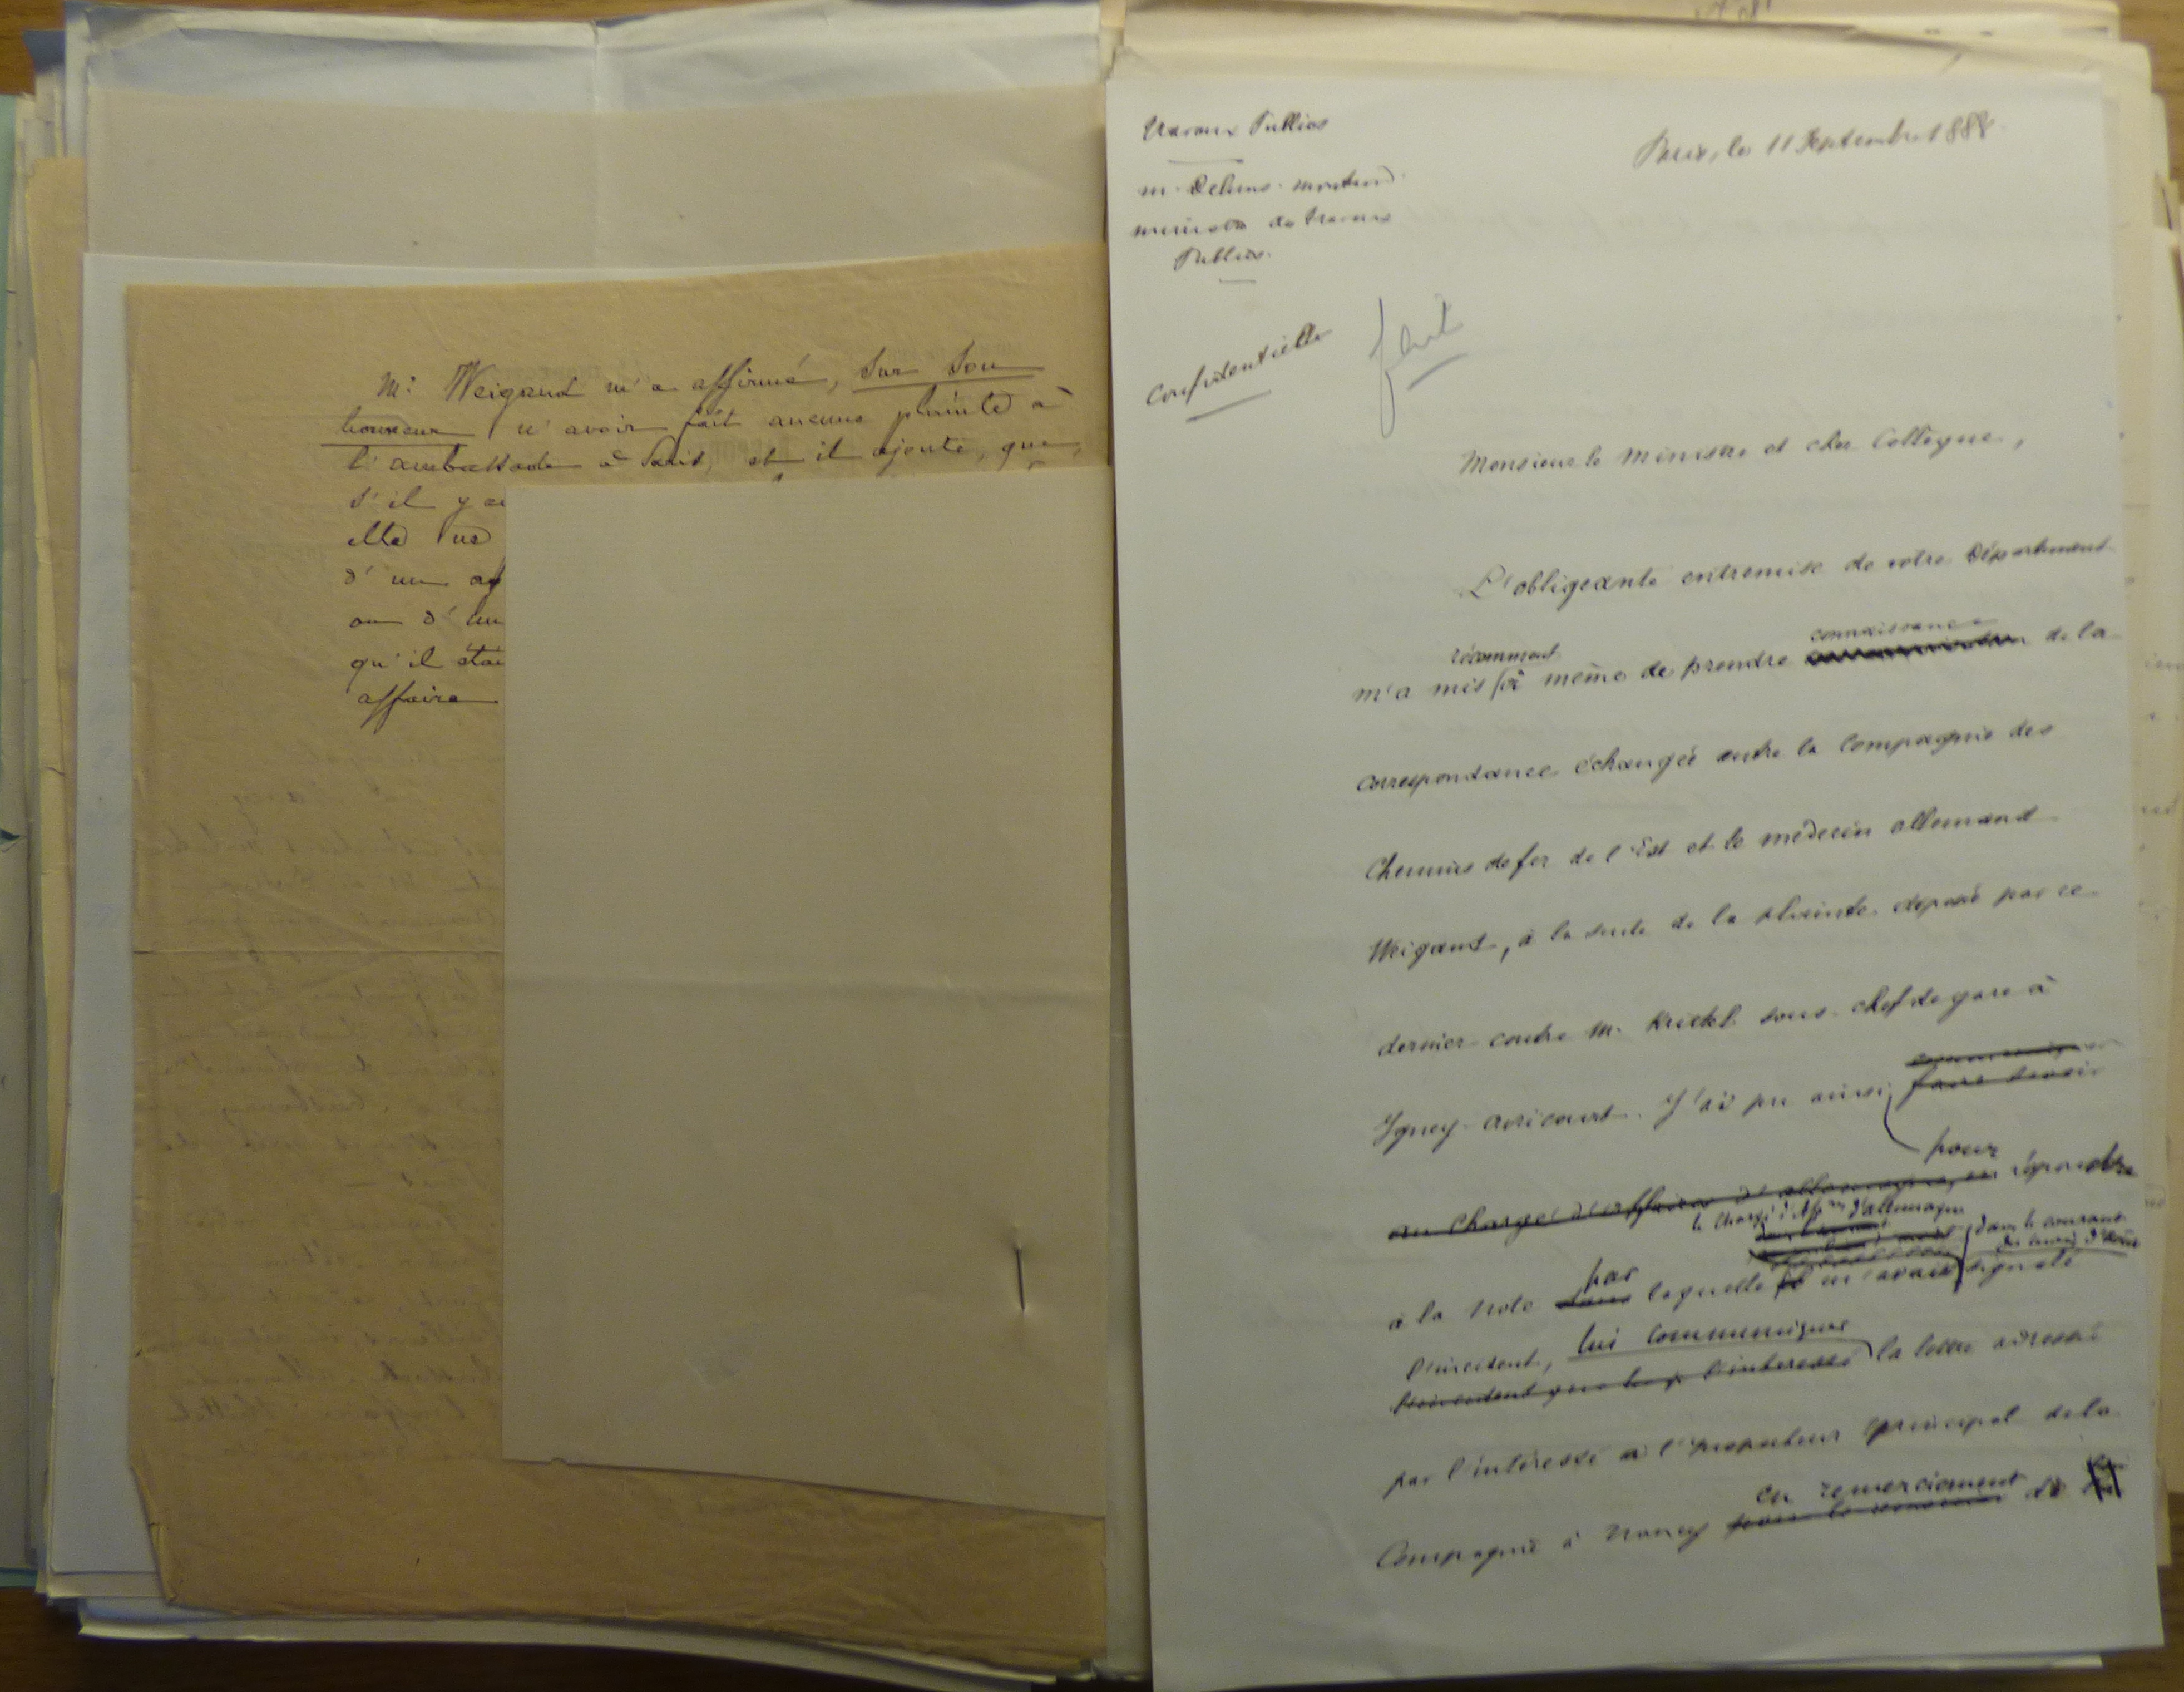 M. Weigand m'a affirmé, sur son
honneur n'avoir fait aucune plainte à
l'ambassade à Paris et il ajoute, que,
s'il y a
elle ne
d'un ag
ou d'un
qu'il étai
affaire
Travaux Publics
M. Deluns-Montaud
ministre des Travaux
Publics.
Confidentielle
fait
Paris, le 11 Septembre 1888.
Monsieur le Ministre et cher Collègue,
L'obligeante entremise de votre Département
récemment
connaissance
m'a mis à même de prendre de la
correspondance échangée entre la Compagnie des
Chemins de fer de l'Est et le médecin allemand
Weigand, à la suite de la plainte déposée par ce
dernier contre M. sous-chef de gare à
Igney-Avricourt. J'ai pu ainsi, faire savoir
pour
au Chargé d'affaires d'Allemagne, en répondre
le Chargé d'Aff.res d'Allemagne
dans le courant
du mois d'août
par
à la Note dans laquelle il m'avait signalé
l'incident, lui communiquer
l'incident que l'intéressé la lettre adressée
par l'intéressé à l'Inspecteur principal de la
en remerciement
Compagnie à Nancy pour le remercier de